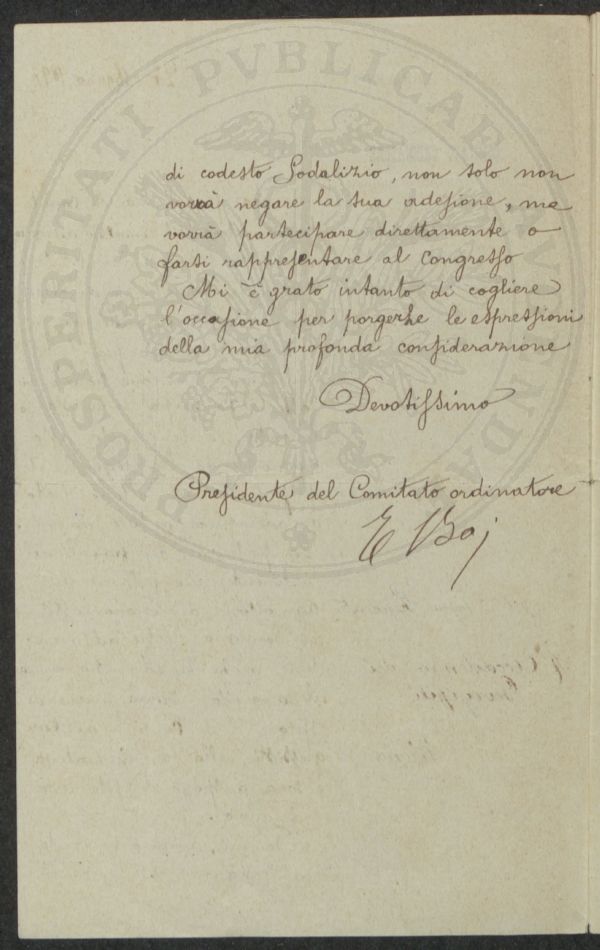 PROSPERITATI PVBLICAE
di codesto Sodalizio, non solo non
vorrà negare la sua adesione, ma
vorrà partecipare direttamente o
farsi rappresentare al Congresso
Mi è grato intanto di cogliere
l'occasione per porgerLe le espressioni
della mia profonda considerazione
Devotissimo
Presidente del Comitato ordinatore